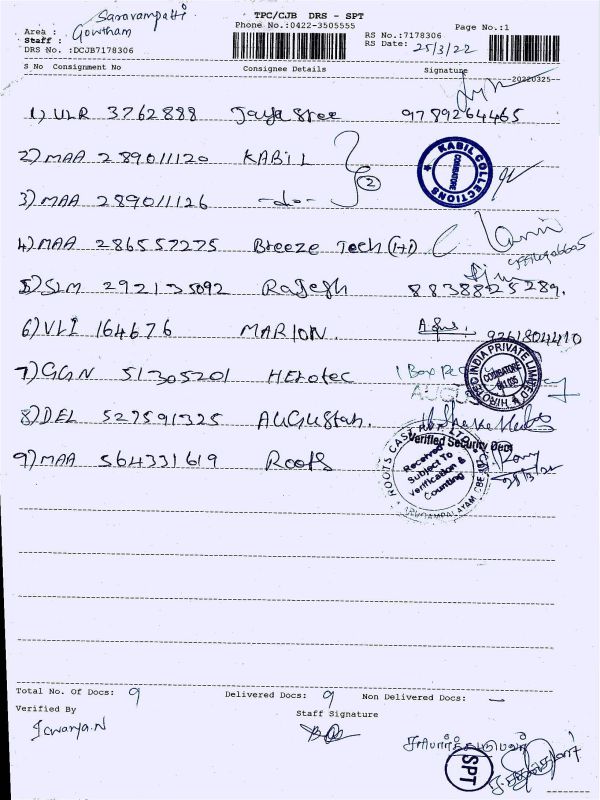 TPC/CJB DRS - SPT
Phone No.:0422-3505555
Page No.:1
Saravampatti
Area :
Staff : Gowtham
DRS No. :DCJB7178306
RS No.:7178306
RS Date: 25/3/22
S No Consignment No Consignee Details Signature
20220325
1) ULR 3762888 Jaya Sree 9789264465
2) MAA 289011120 KABIL
KABIL COLLECTIONS
COIMBATORE
3) MAA 289011126 -do- 2
4) MAA 286557275 Breeze Tech (1+1)
5) SLM 292135092 Rajesh 8838825289.
6) VLI 164676 MARION. 9261804410
7) GGN 51305201 Herotec 1 Box
HIROTEC INDIA PRIVATE LIMITED
COIMBATORE
641 005
8) DEL 527591325 AUGUstan.
9) MAA 564331619 Roots
ROOTS CAST PVT LTD
Verified Security Dept
Received
Subject To
Verification &
Counting
25/3/22
Total No. Of Docs: 9 Delivered Docs: 9 Non Delivered Docs: —
Verified By Staff Signature
Icwarya.N
SPT